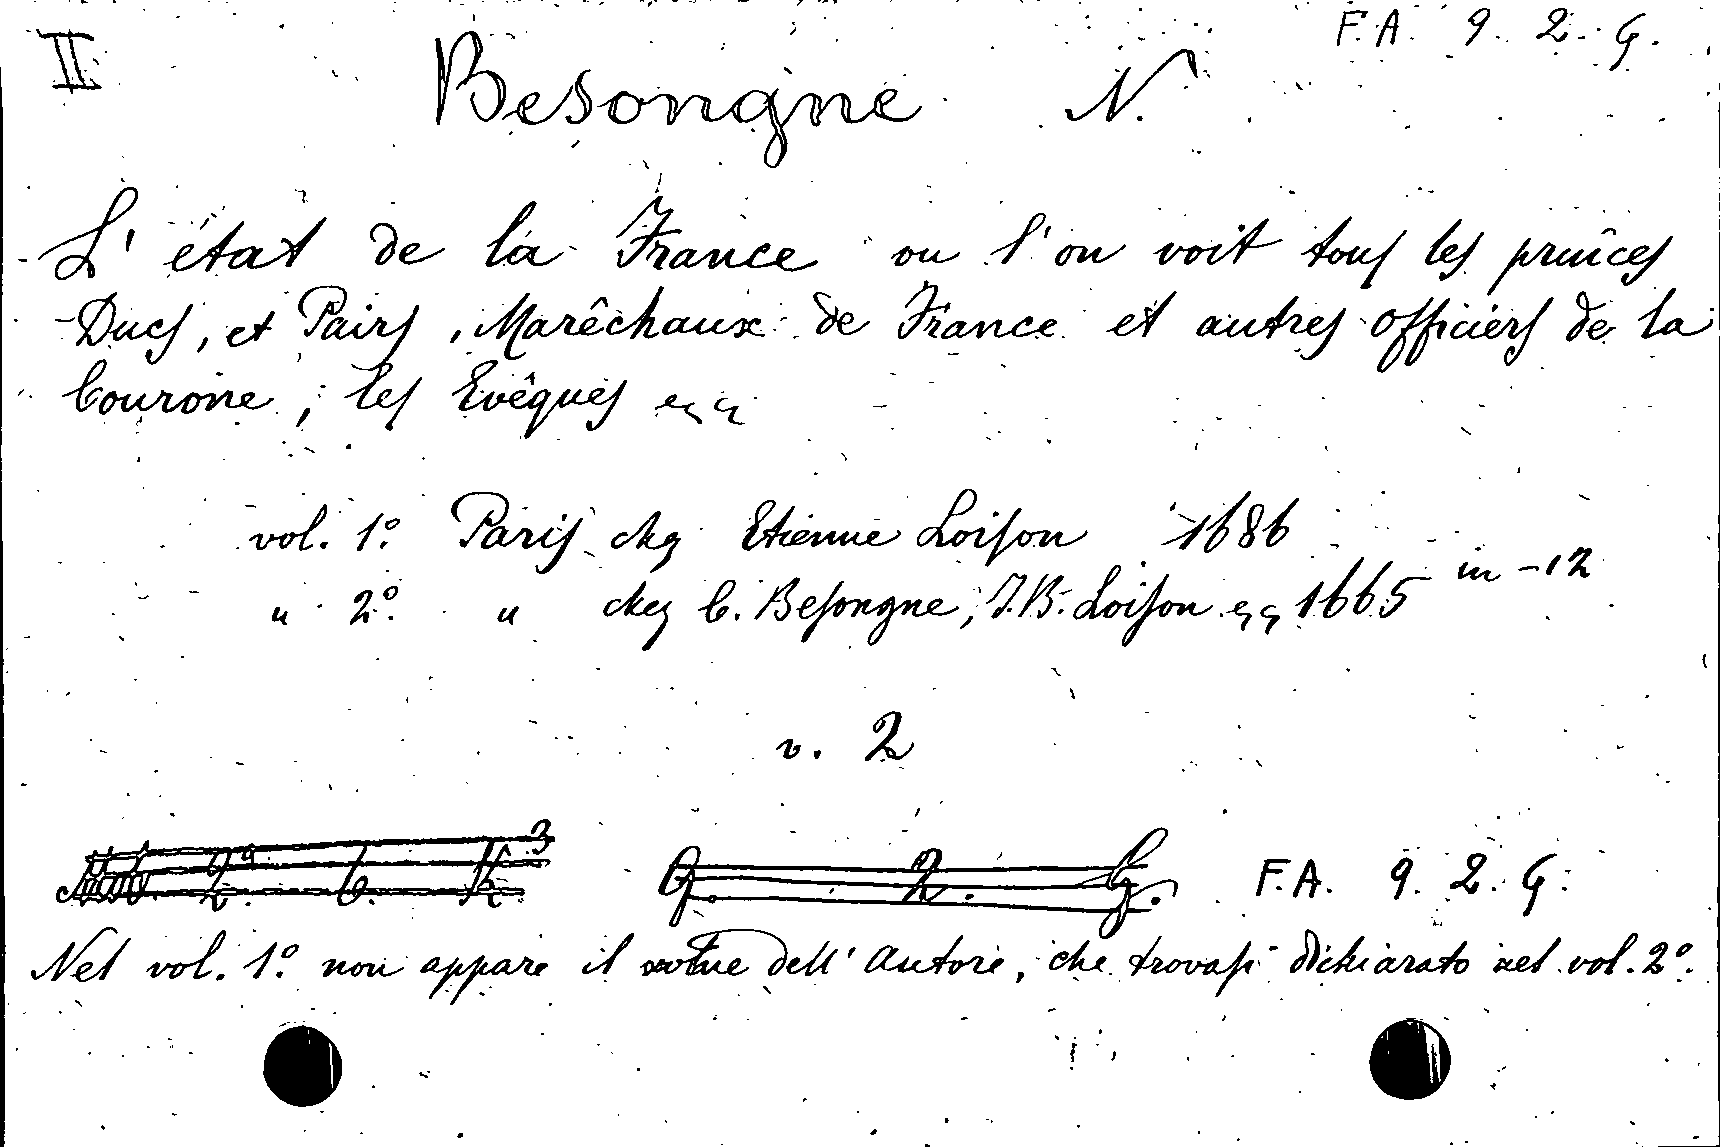 II F.A. 9. 2. G.
Besongne N.
L'état de la France ou l'on voit tous les princes
Ducs, et Pairs, Marêchaux de France et autres officiers de la
Courone, les Evêques ecc
vol. 1º. Paris chez Etienne Loison 1686
" 2º. " chez C. Besongne, J.B. Loison ecc 1665 in-12
v. 2
2ª 6. K3 G. 2. G. F.A. 9. 2. G.
Nel vol. 1º. non appare il nome dell'Autore, che trovasi dichiarato nel vol. 2º.